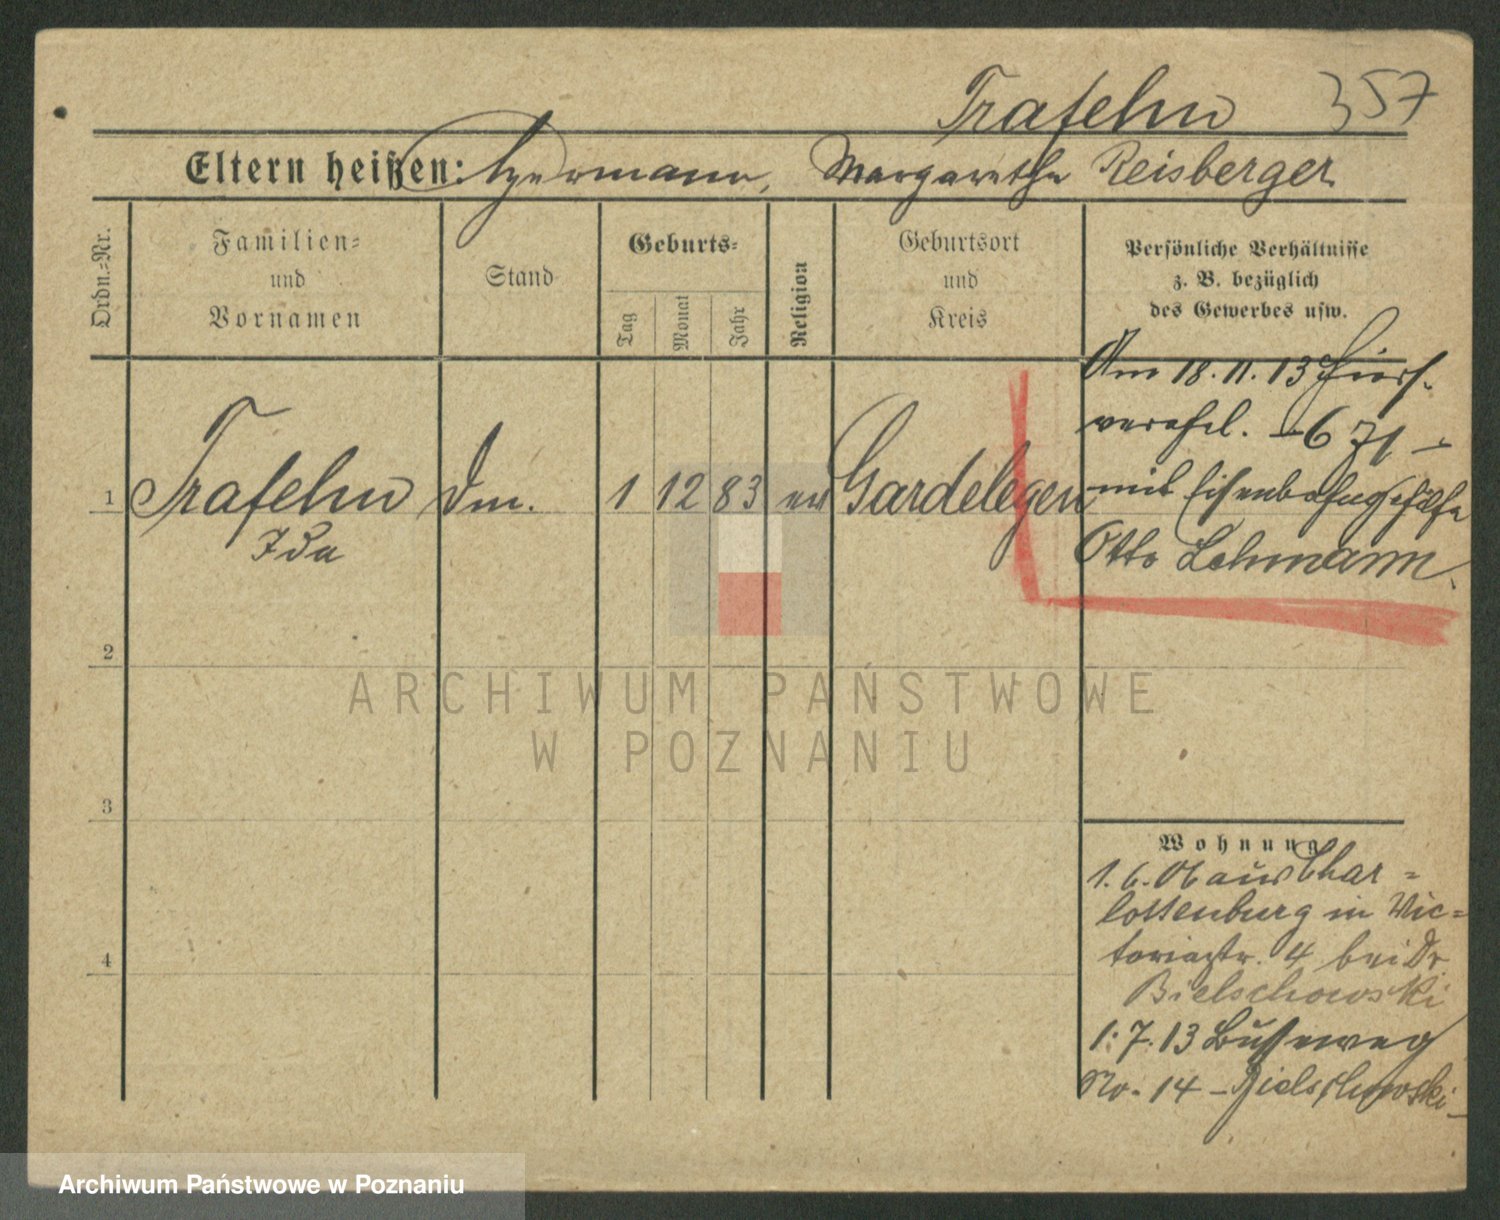 Trafehn 357
Eltern heißen: Hermann, Margarethe Reisberger
Ordn.-Nr.
Familien-
und
Vornamen
Stand
Geburts-
Tag
Monat
Jahr
Religion
Geburtsort
und
Kreis
Persönliche Verhältnisse
z. B. bezüglich
des Gewerbes usw.
1 Trafehn 1 12 83 ev Gardelegen
Ida
Am 18.11.13 hiers.
verehel. – 671 –
mit Eisenbahngehilfe
Otto Lehmann.
2
3
4
Wohnung
1.6.06 aus Char=
lottenburg in Vic=
toriastr. 4 bei Dr.
Bielschowski
1.7.13 Busseweg
No. 14 – Bielschowski –
ARCHIWUM PAŃSTWOWE
W POZNANIU
Archiwum Państwowe w Poznaniu